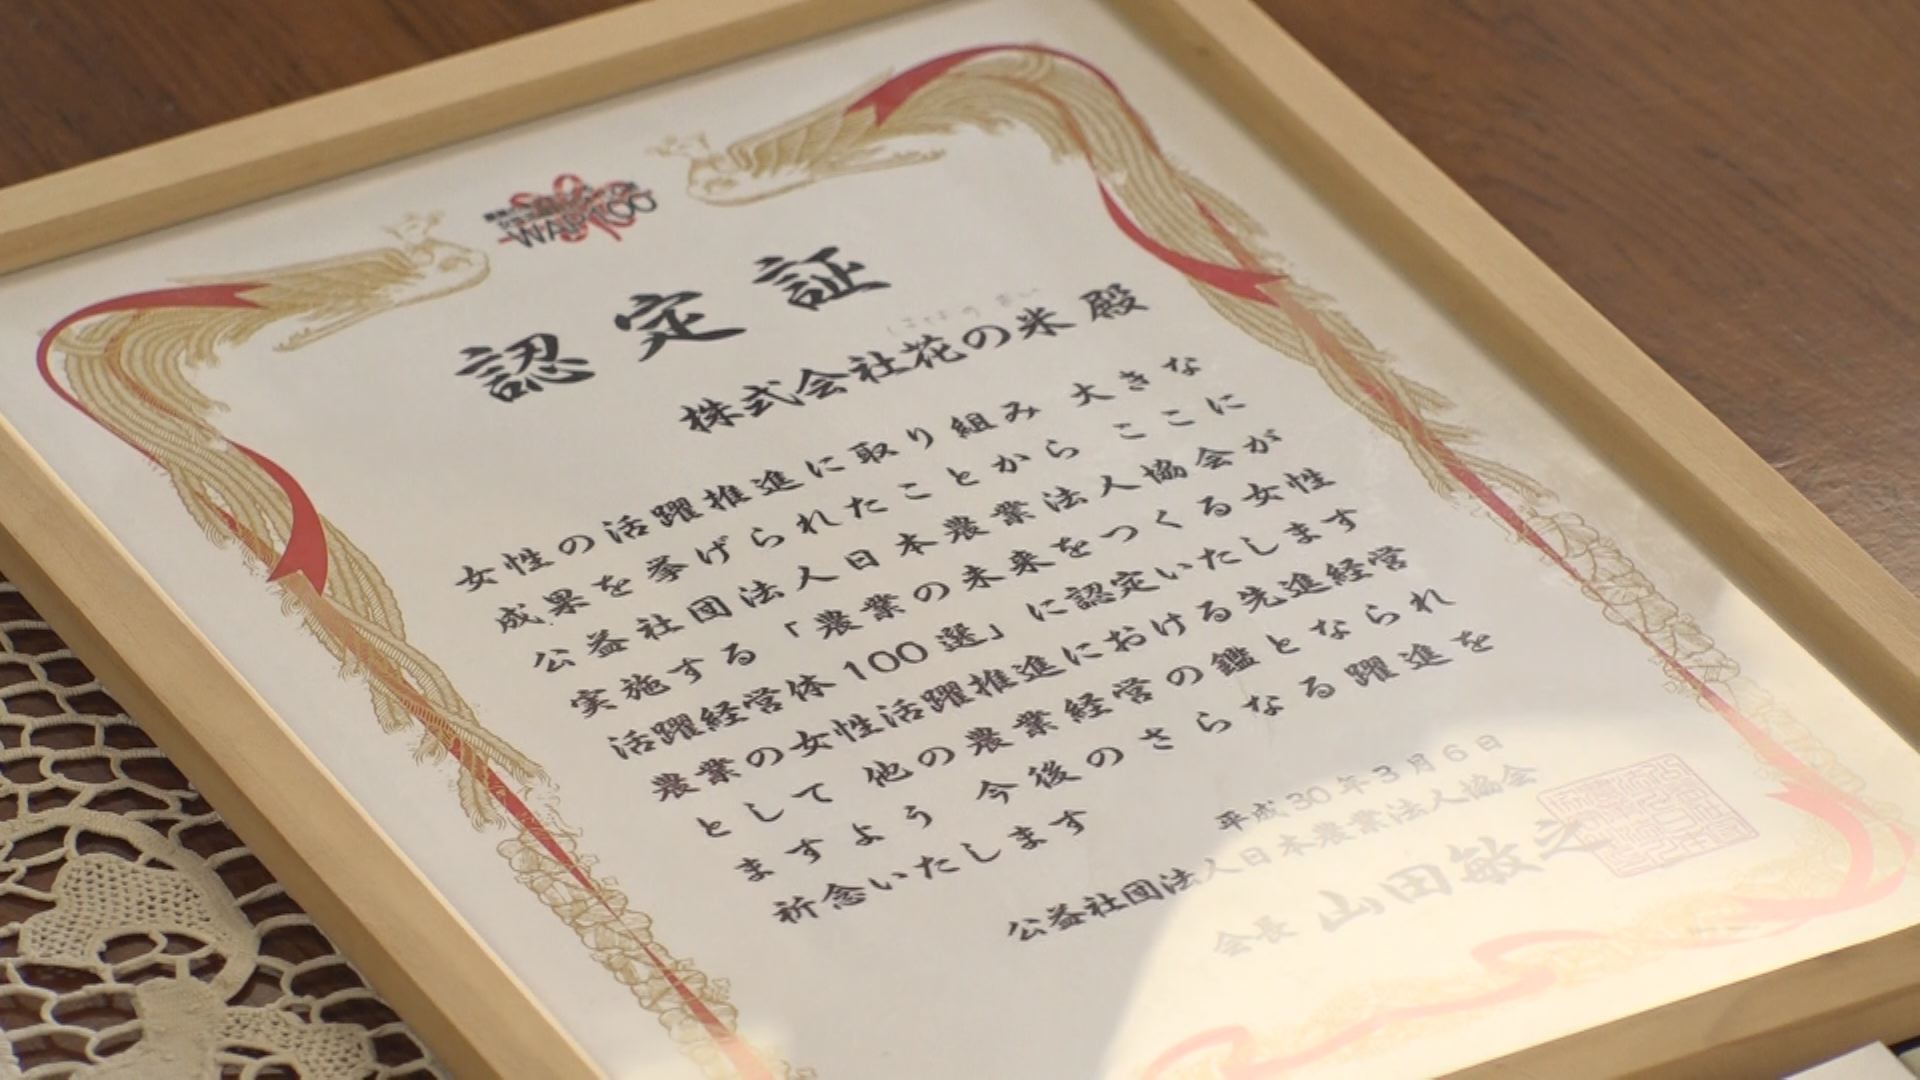 WAP100
認定証
株式会社花の米 殿
女性の活躍推進に取り組み 大きな
成果を挙げられたことから ここに
公益社団法人日本農業法人協会が
実施する「農業の未来をつくる女性
活躍経営体100選」に認定いたします
農業の女性活躍推進における先進経営
として 他の農業経営の鑑となられ
ますよう 今後のさらなる躍進を
祈念いたします
平成30年3月6日
公益社団法人日本農業法人協会
会長 山田敏之